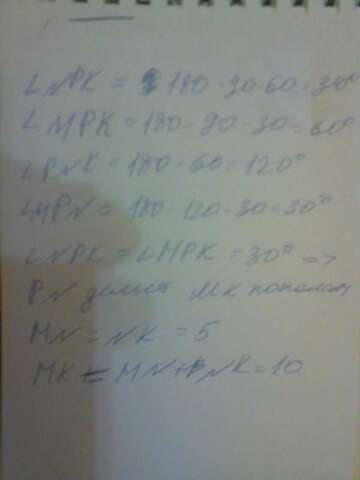 ∠NPK = 180-90-60=30°
∠MPK=180-90-30=60°
∠PNK=180-60=120°
∠MPN=180-120-30=30°
∠NPK=∠MPK=30° =>
PN делит MK пополам
MN=NK=5
MK=MN+NK=10